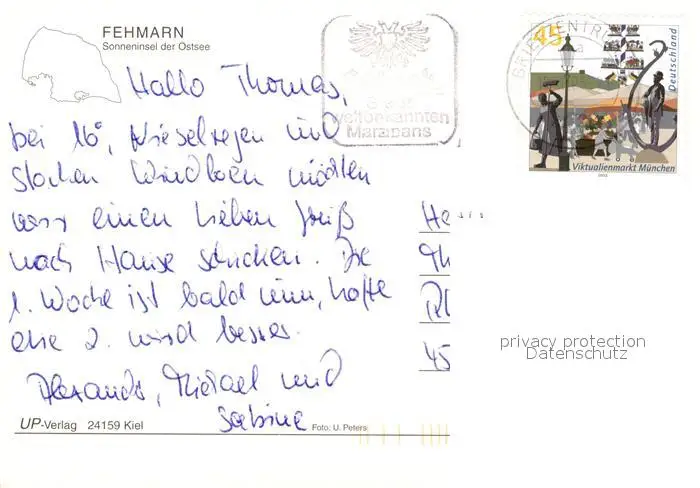 FEHMARN
Sonneninsel der Ostsee
Hallo Thomas,
bei 16°, Nieselregen und
starken Windböen möchten
wir einen lieben Gruß
nach Hause schicken. Die
1. Woche ist bald um, hoffe
die 2. wird besser.
Alexandra, Michael und
Sabine
UP-Verlag 24159 Kiel
Foto: U. Peters
weltbekannten
Marzipans
BRIEFZENTR
45
Deutschland
Viktualienmarkt München
2003
He
Th
45
privacy protection
Datenschutz